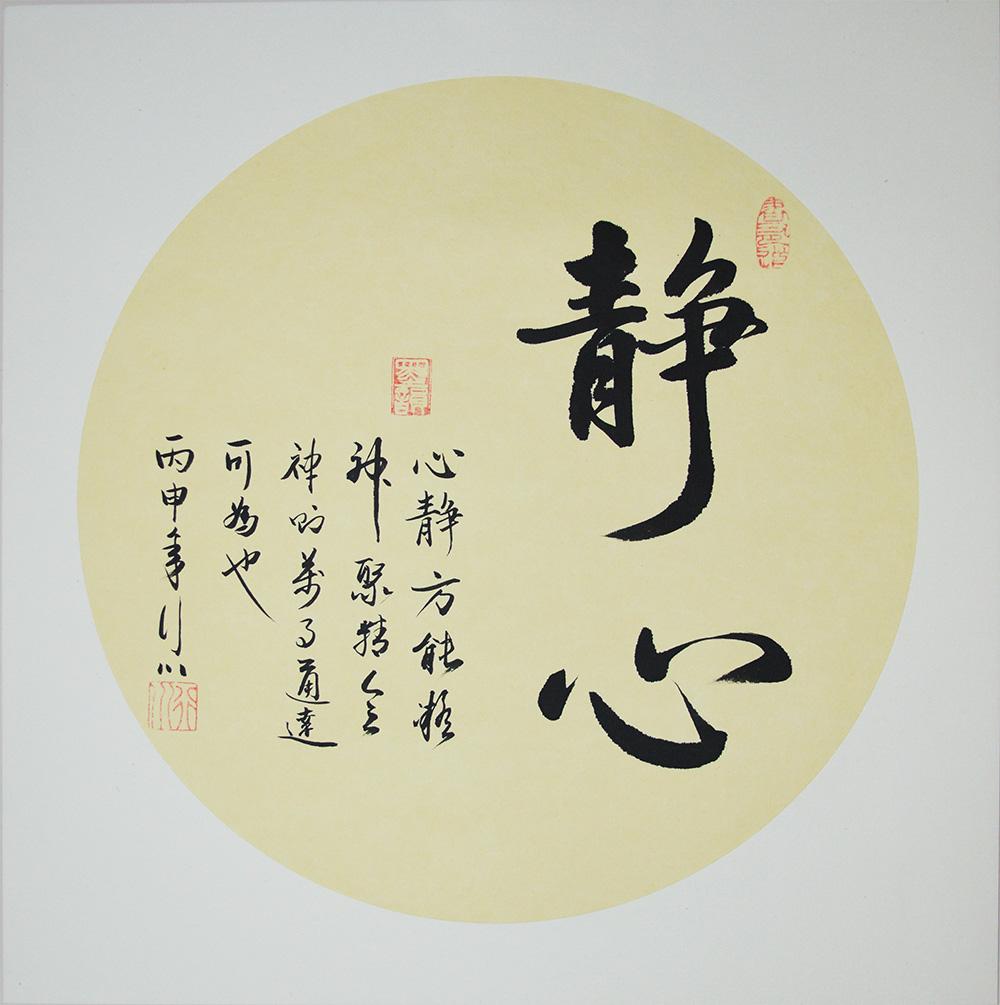 静心
心静方能凝
神聚精会
神则萬事通達
可為也
丙申年行川